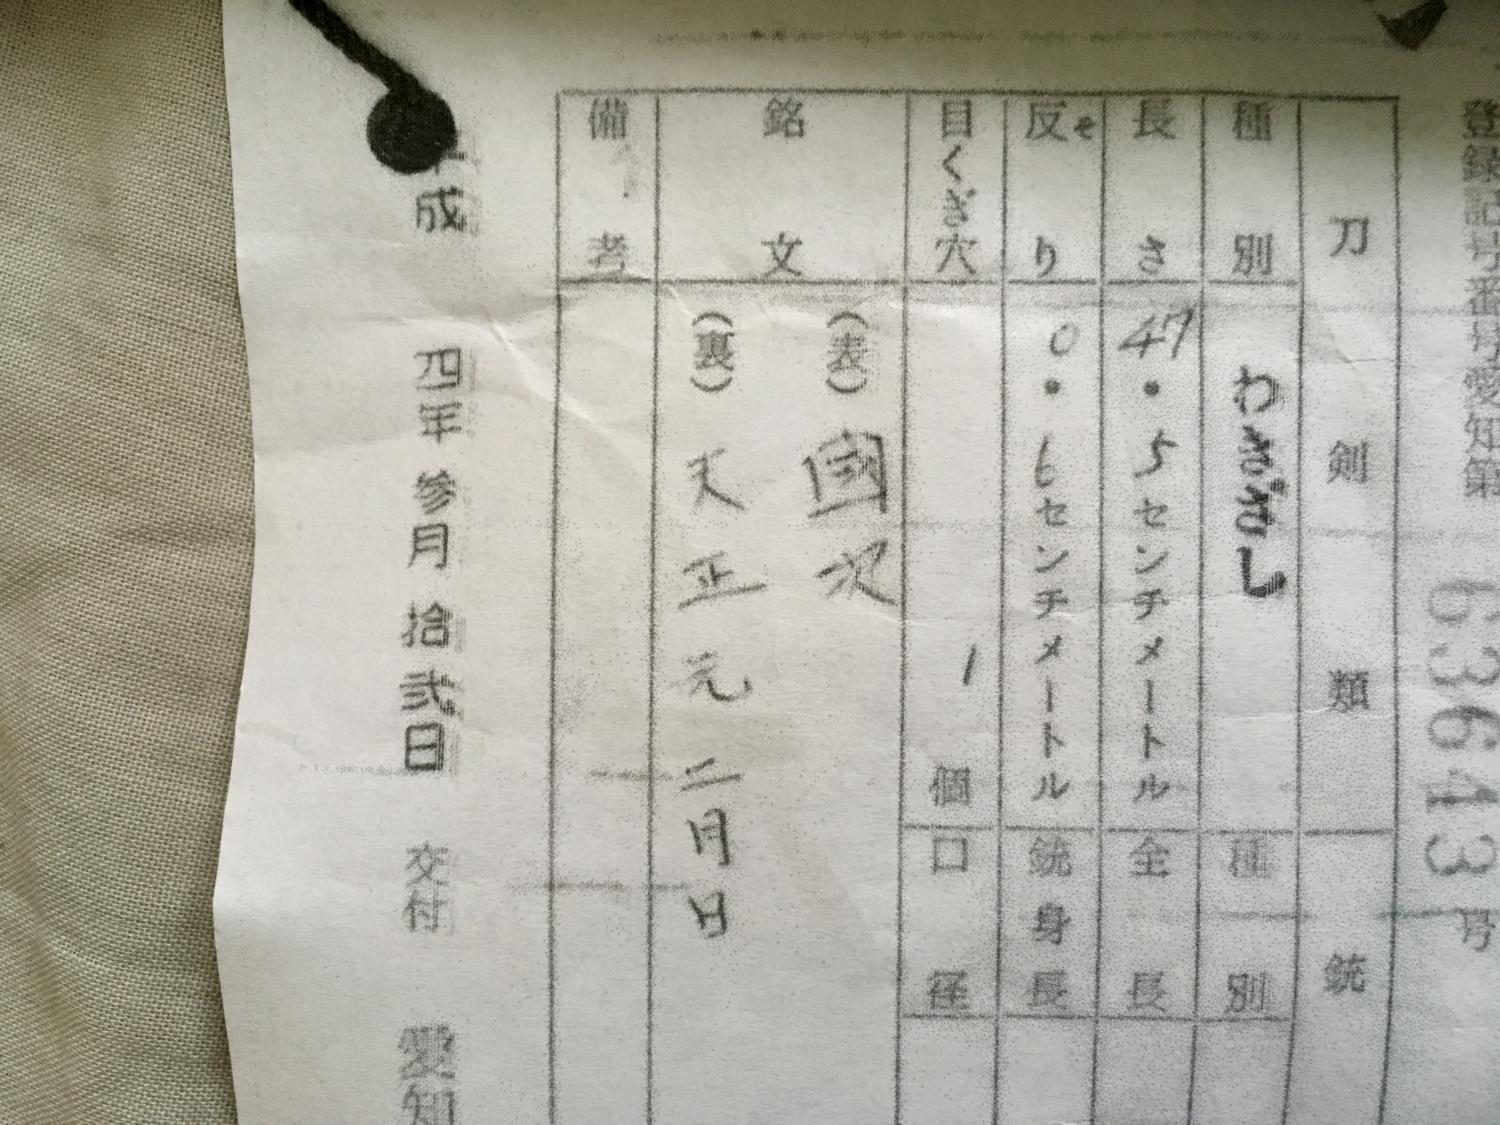 登録記号番号愛知第 63643 号
刀剣類
銃
種別 わきざし
種別
長さ 47.5センチメートル
全長
反り 0.6センチメートル
銃身長
目くぎ穴 1個
口径
銘文 (表) 國次
(裏) 天正元二月日
備考
成 四年 参月 拾弐日 交付 愛知